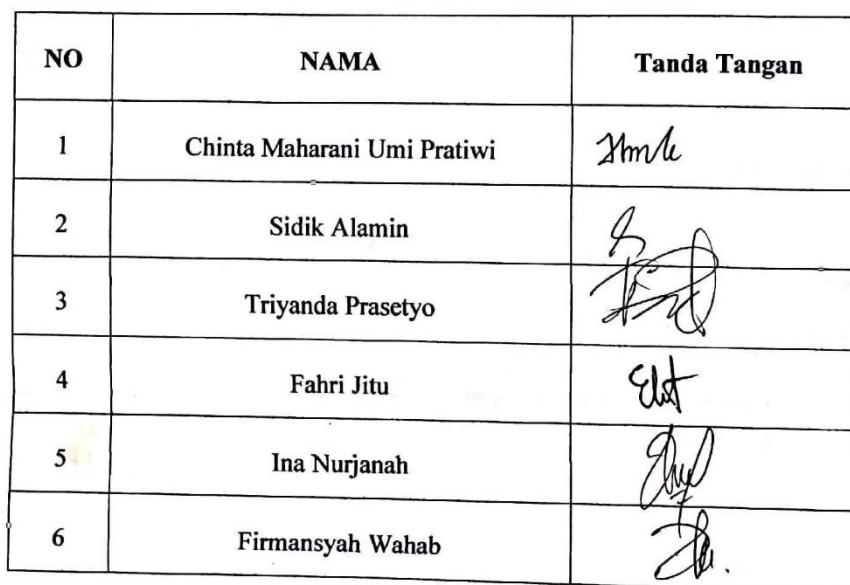 NO NAMA Tanda Tangan
1 Chinta Maharani Umi Pratiwi
2 Sidik Alamin
3 Triyanda Prasetyo
4 Fahri Jitu
5 Ina Nurjanah
6 Firmansyah Wahab